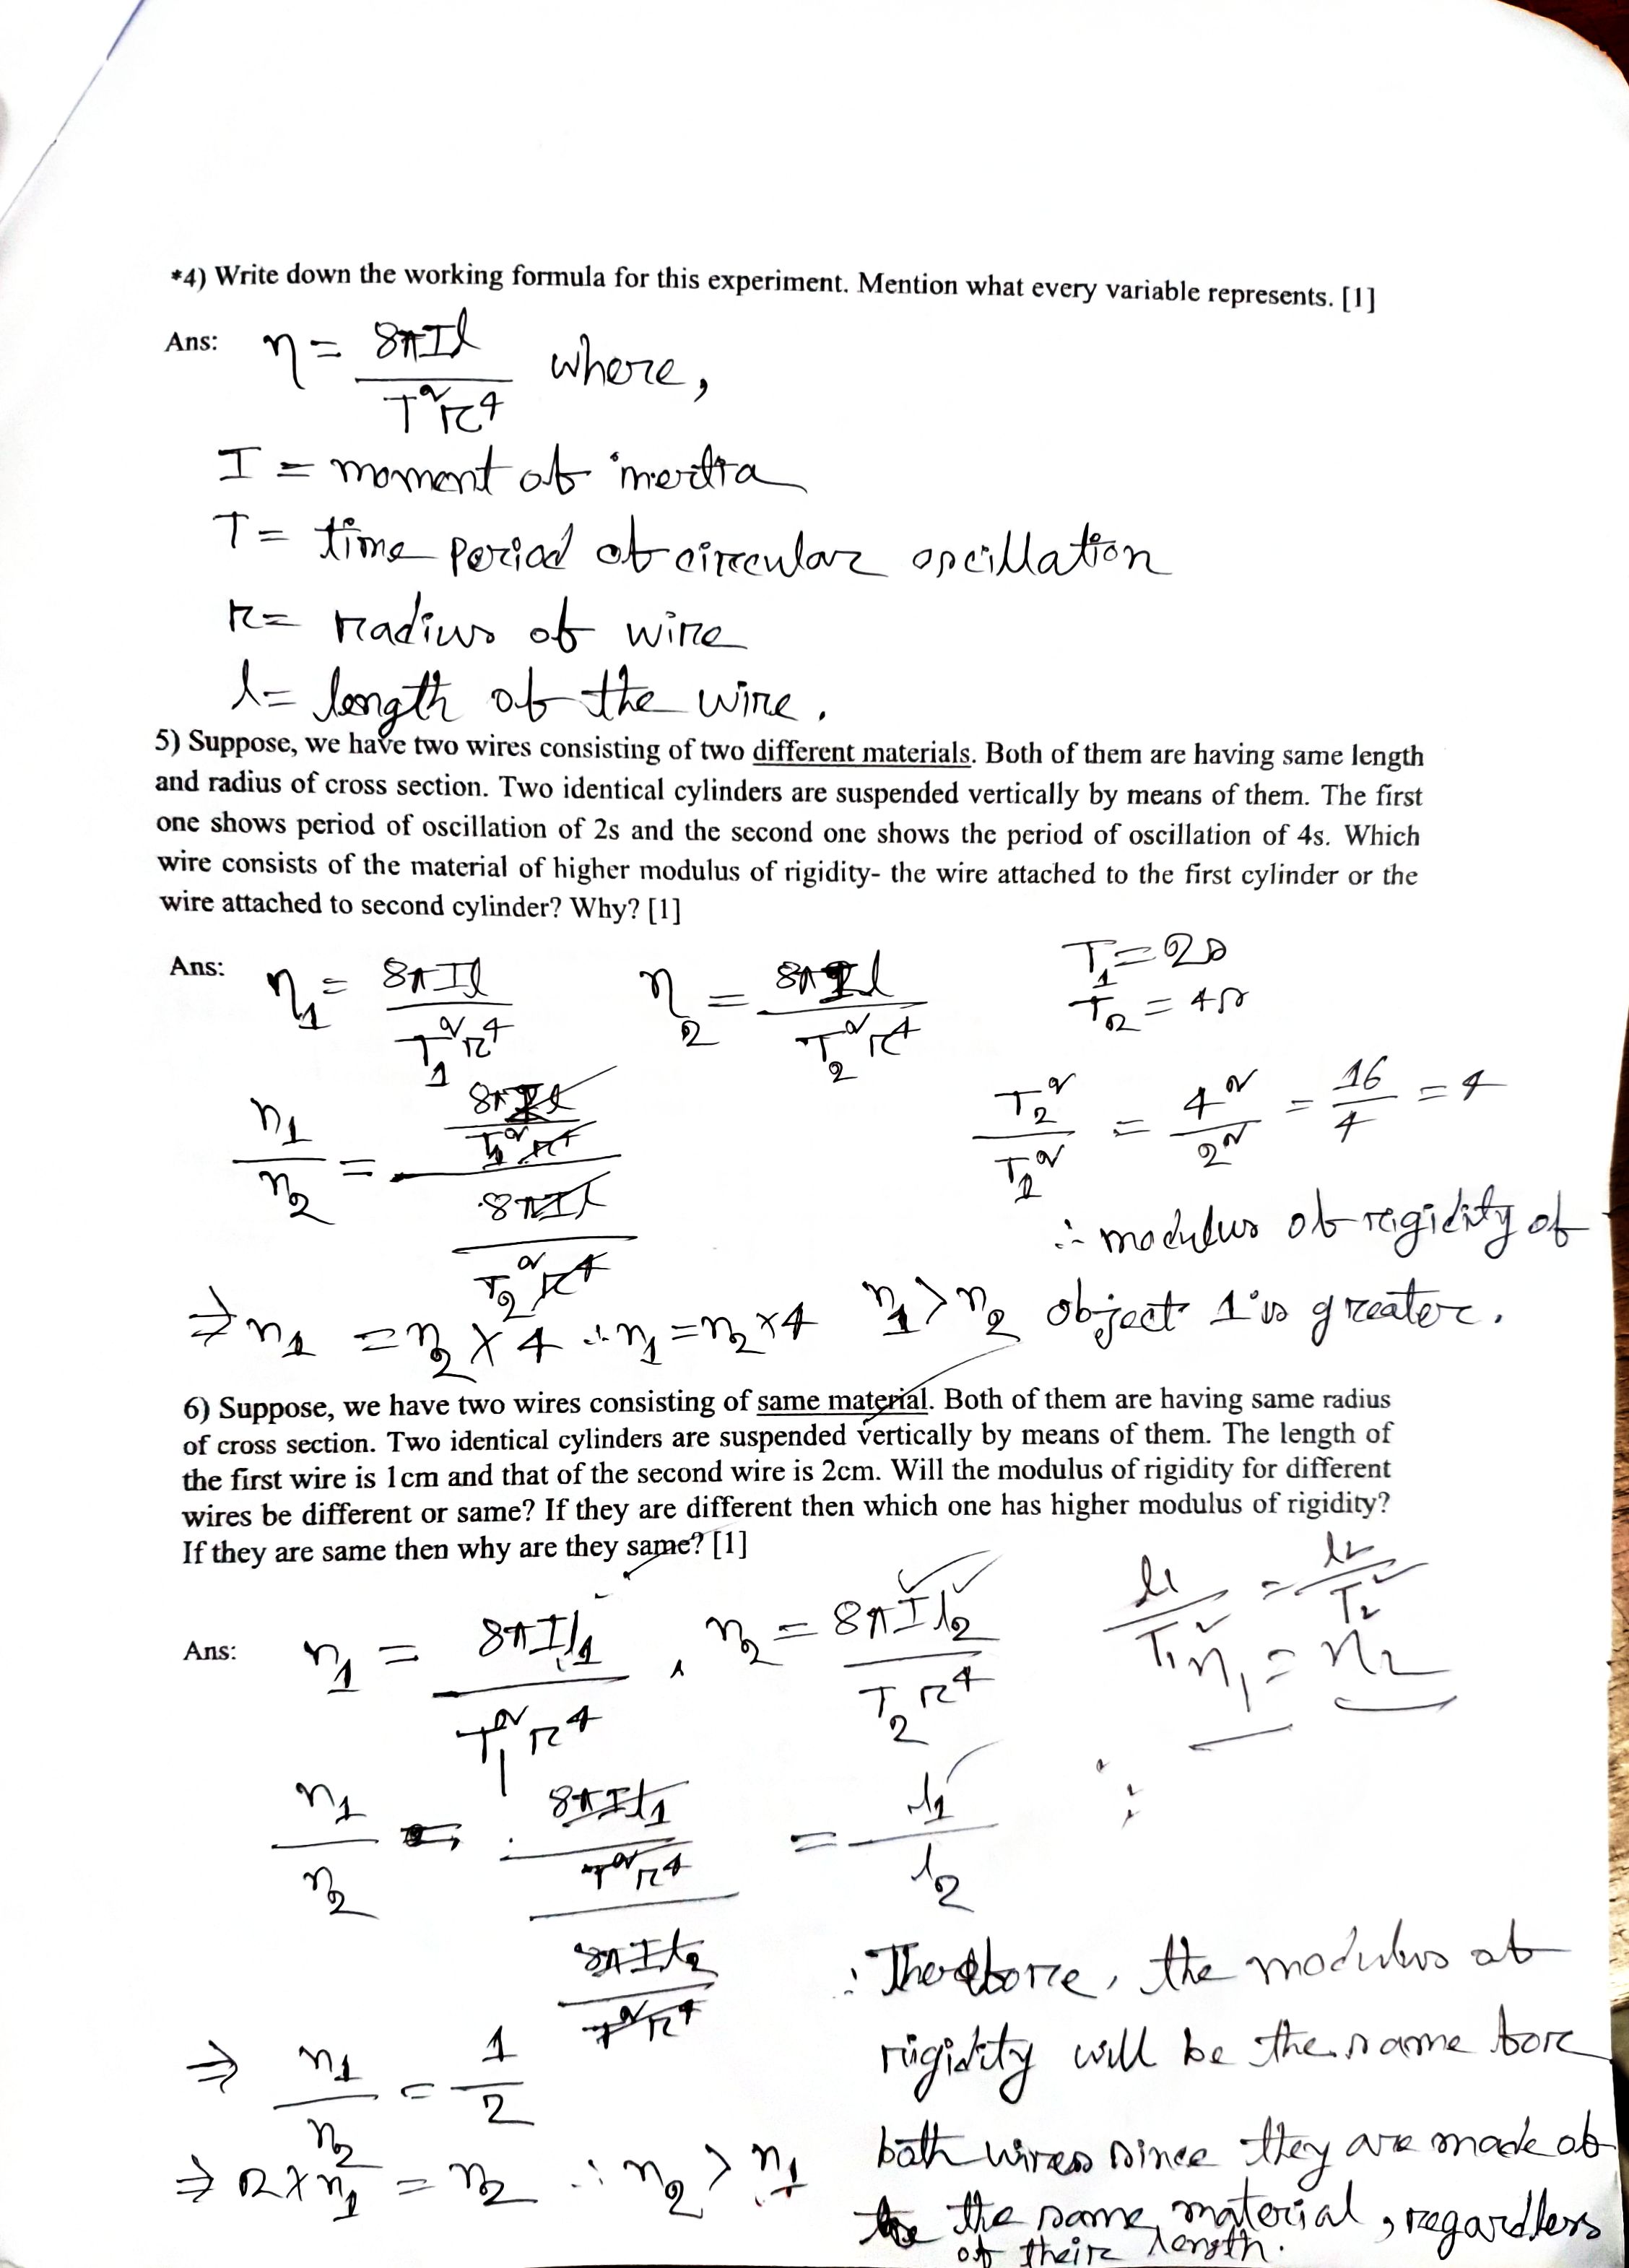 *4) Write down the working formula for this experiment. Mention what every variable represents. [1]
Ans: η = 8πIl / T²r⁴ where,
I = moment of inertia
T = time period of circular oscillation
r = radius of wire
l = length of the wire.
5) Suppose, we have two wires consisting of two different materials. Both of them are having same length
and radius of cross section. Two identical cylinders are suspended vertically by means of them. The first
one shows period of oscillation of 2s and the second one shows the period of oscillation of 4s. Which
wire consists of the material of higher modulus of rigidity- the wire attached to the first cylinder or the
wire attached to second cylinder? Why? [1]
Ans: η₁ = 8πIl / T₁²r⁴ η₂ = 8πIl / T₂²r⁴ T₁ = 2s
T₂ = 4s
n₁/n₂ = (8πIl / T₁²r⁴) / (8πIl / T₂²r⁴) T₂²/T₁² = 4²/2² = 16/4 = 4
∴ modulus of rigidity of
⇒ n₁ = n₂ × 4 ∴ n₁ = n₂ × 4 n₁ > n₂ object 1 is greater.
6) Suppose, we have two wires consisting of same material. Both of them are having same radius
of cross section. Two identical cylinders are suspended vertically by means of them. The length of
the first wire is 1cm and that of the second wire is 2cm. Will the modulus of rigidity for different
wires be different or same? If they are different then which one has higher modulus of rigidity?
If they are same then why are they same? [1]
l₁/T₁² = l₂/T₂²
Ans: n₁ = 8πIl₁ / T₁²r⁴ , n₂ = 8πIl₂ / T₂r⁴ n₁ = n₂
n₁/n₂ = (8πIl₁ / T²r⁴) / (8πIl₂ / T²r⁴) = l₁/l₂
∴ Therefore, the modulus of
⇒ n₁/n₂ = 1/2 rigidity will be the same for
⇒ 2 × n₁ = n₂ ∴ n₂ > n₁ both wires since they are made of
the same material, regardless
of their length.